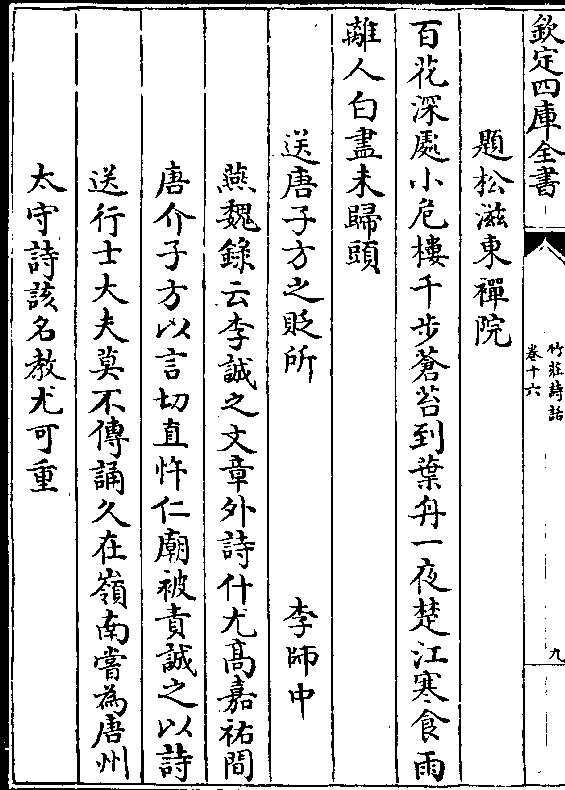 欽定四庫全書
竹莊詩話
卷十六
九
題松滋東禪院
百花深處小危樓千步蒼苔到葉舟一夜楚江寒食雨
離人白盡未歸頭
送唐子方之貶所 李師中
燕魏錄云李誠之文章外詩什尤高嘉祐間
唐介子方以言切直忤仁廟被責誠之以詩
送行士大夫莫不傳誦久在嶺南嘗為唐州
太守詩該名教尤可重